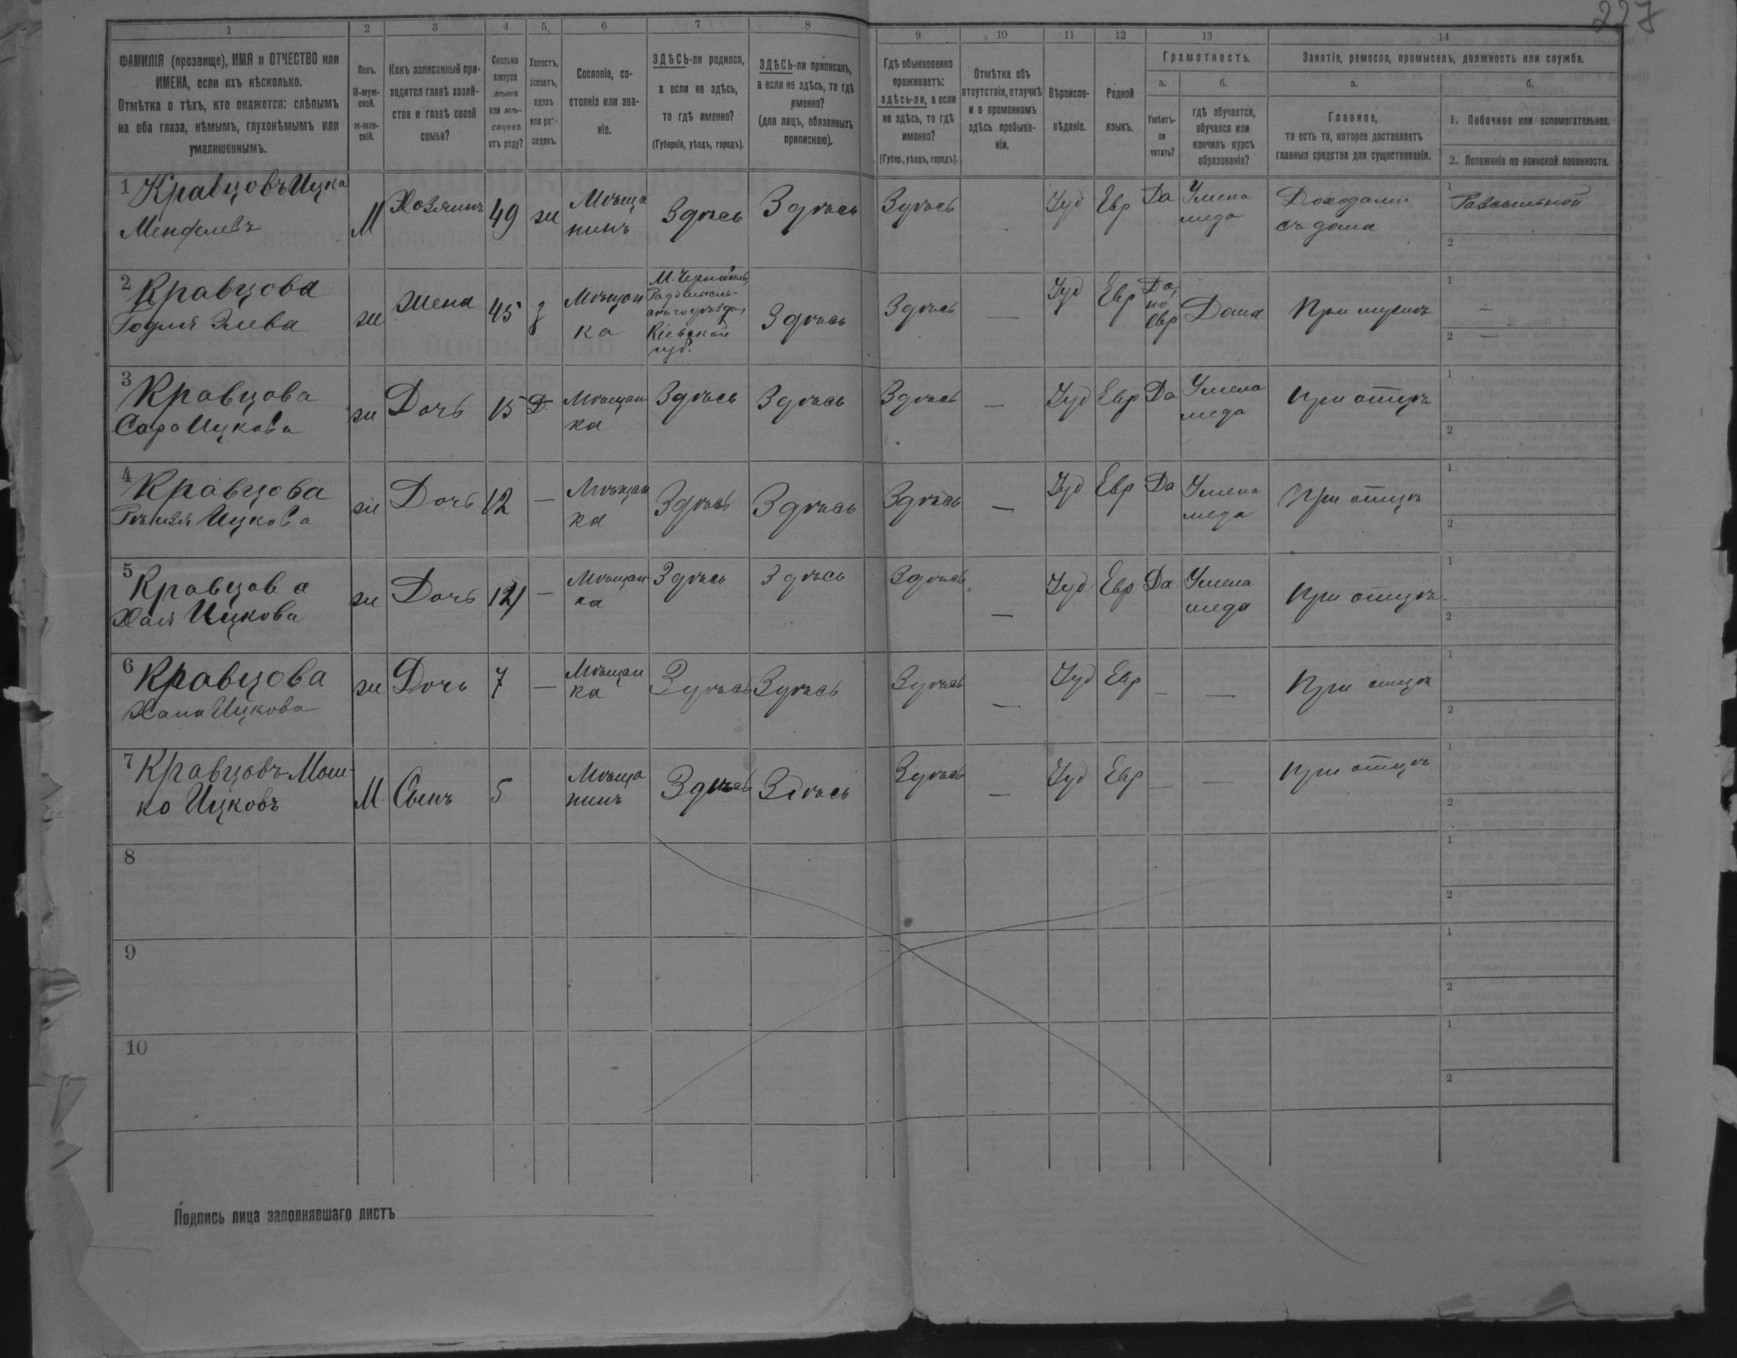 227
1 2 3 4 5 6 7 8 9 10 11 12 13 14
ФАМИЛІЯ (прозвище), ИМЯ и ОТЧЕСТВО или
ИМЕНА, если ихъ нѣсколько.
Отмѣтка о тѣхъ, кто окажется: слѣпымъ
на оба глаза, нѣмымъ, глухонѣмымъ или
умалишеннымъ.
Полъ.
М-муж-
ской.
ж-жен-
скій.
Какъ записанный при-
ходится главѣ хозяй-
ства и главѣ своей
семьи?
Сколько
минуло
лѣтъ
или мѣ-
сяцевъ
отъ роду?
Холостъ,
женатъ,
вдовъ
или раз-
веденъ.
Сословіе, со-
стояніе или зва-
ніе.
ЗДѢСЬ-ли родился,
а если не здѣсь,
то гдѣ именно?
(Губернія, уѣздъ, городъ).
ЗДѢСЬ-ли приписанъ,
а если не здѣсь, то гдѣ
именно?
(для лицъ, обязанныхъ
припискою).
Гдѣ обыкновенно
проживаетъ:
здѣсь-ли, а если
не здѣсь, то гдѣ
именно?
(Губер., уѣздъ, городъ).
Отмѣтка объ
отсутствіи, отлучкѣ
и о временномъ
здѣсь пребыва-
ніи.
Вѣроиспо-
вѣданіе.
Родной
языкъ.
Грамотность.
а.
Умѣетъ-
ли
читать?
б.
гдѣ обучается,
обучался или
кончилъ курсъ
образованія?
Занятіе, ремесло, промыселъ, должность или служба.
а.
Главное,
то есть то, которое доставляетъ
главныя средства для существованія.
б.
1. Побочное или вспомогательное.
2. Положеніе по воинской повинности.
1 Кравцовъ Ицка
М Хозяинъ 49 ж Мѣща
нинъ Здѣсь Здѣсь Здѣсь — Іуд Евр Да У мела
меда Доходами
съ дома
1
2
2 Кравцова
ж Жена 45 з Мѣщан
ка
Кіевской
губ. Здѣсь Здѣсь — Іуд Евр Да,
по
Евр Дома При мужѣ
1 —
2 —
3 Кравцова
Сара Ицкова
ж Дочь 15 Д. Мѣщан
ка Здѣсь Здѣсь Здѣсь — Іуд Евр Да У мела
меда При отцѣ
1
2
4 Кравцова
Ицкова
ж Дочь 12 — Мѣщан
ка Здѣсь Здѣсь Здѣсь — Іуд Евр Да У мела
меда При отцѣ
1
2
5 Кравцова
Хая Ицкова
ж Дочь — Мѣщан
ка Здѣсь Здѣсь Здѣсь — Іуд Евр Да У мела
меда При отцѣ
1
2
6 Кравцова
Хана Ицкова
ж Дочь 7 — Мѣщан
ка Здѣсь Здѣсь Здѣсь — Іуд Евр — — При отцѣ
1
2
7 Кравцовъ Мош-
ко Ицковъ
М Сынъ 5 Мѣща
нинъ Здѣсь Здѣсь Здѣсь — Іуд Евр — — При отцѣ
1
2
8
1
2
9
1
2
10
1
2
Подпись лица заполнявшаго листъ